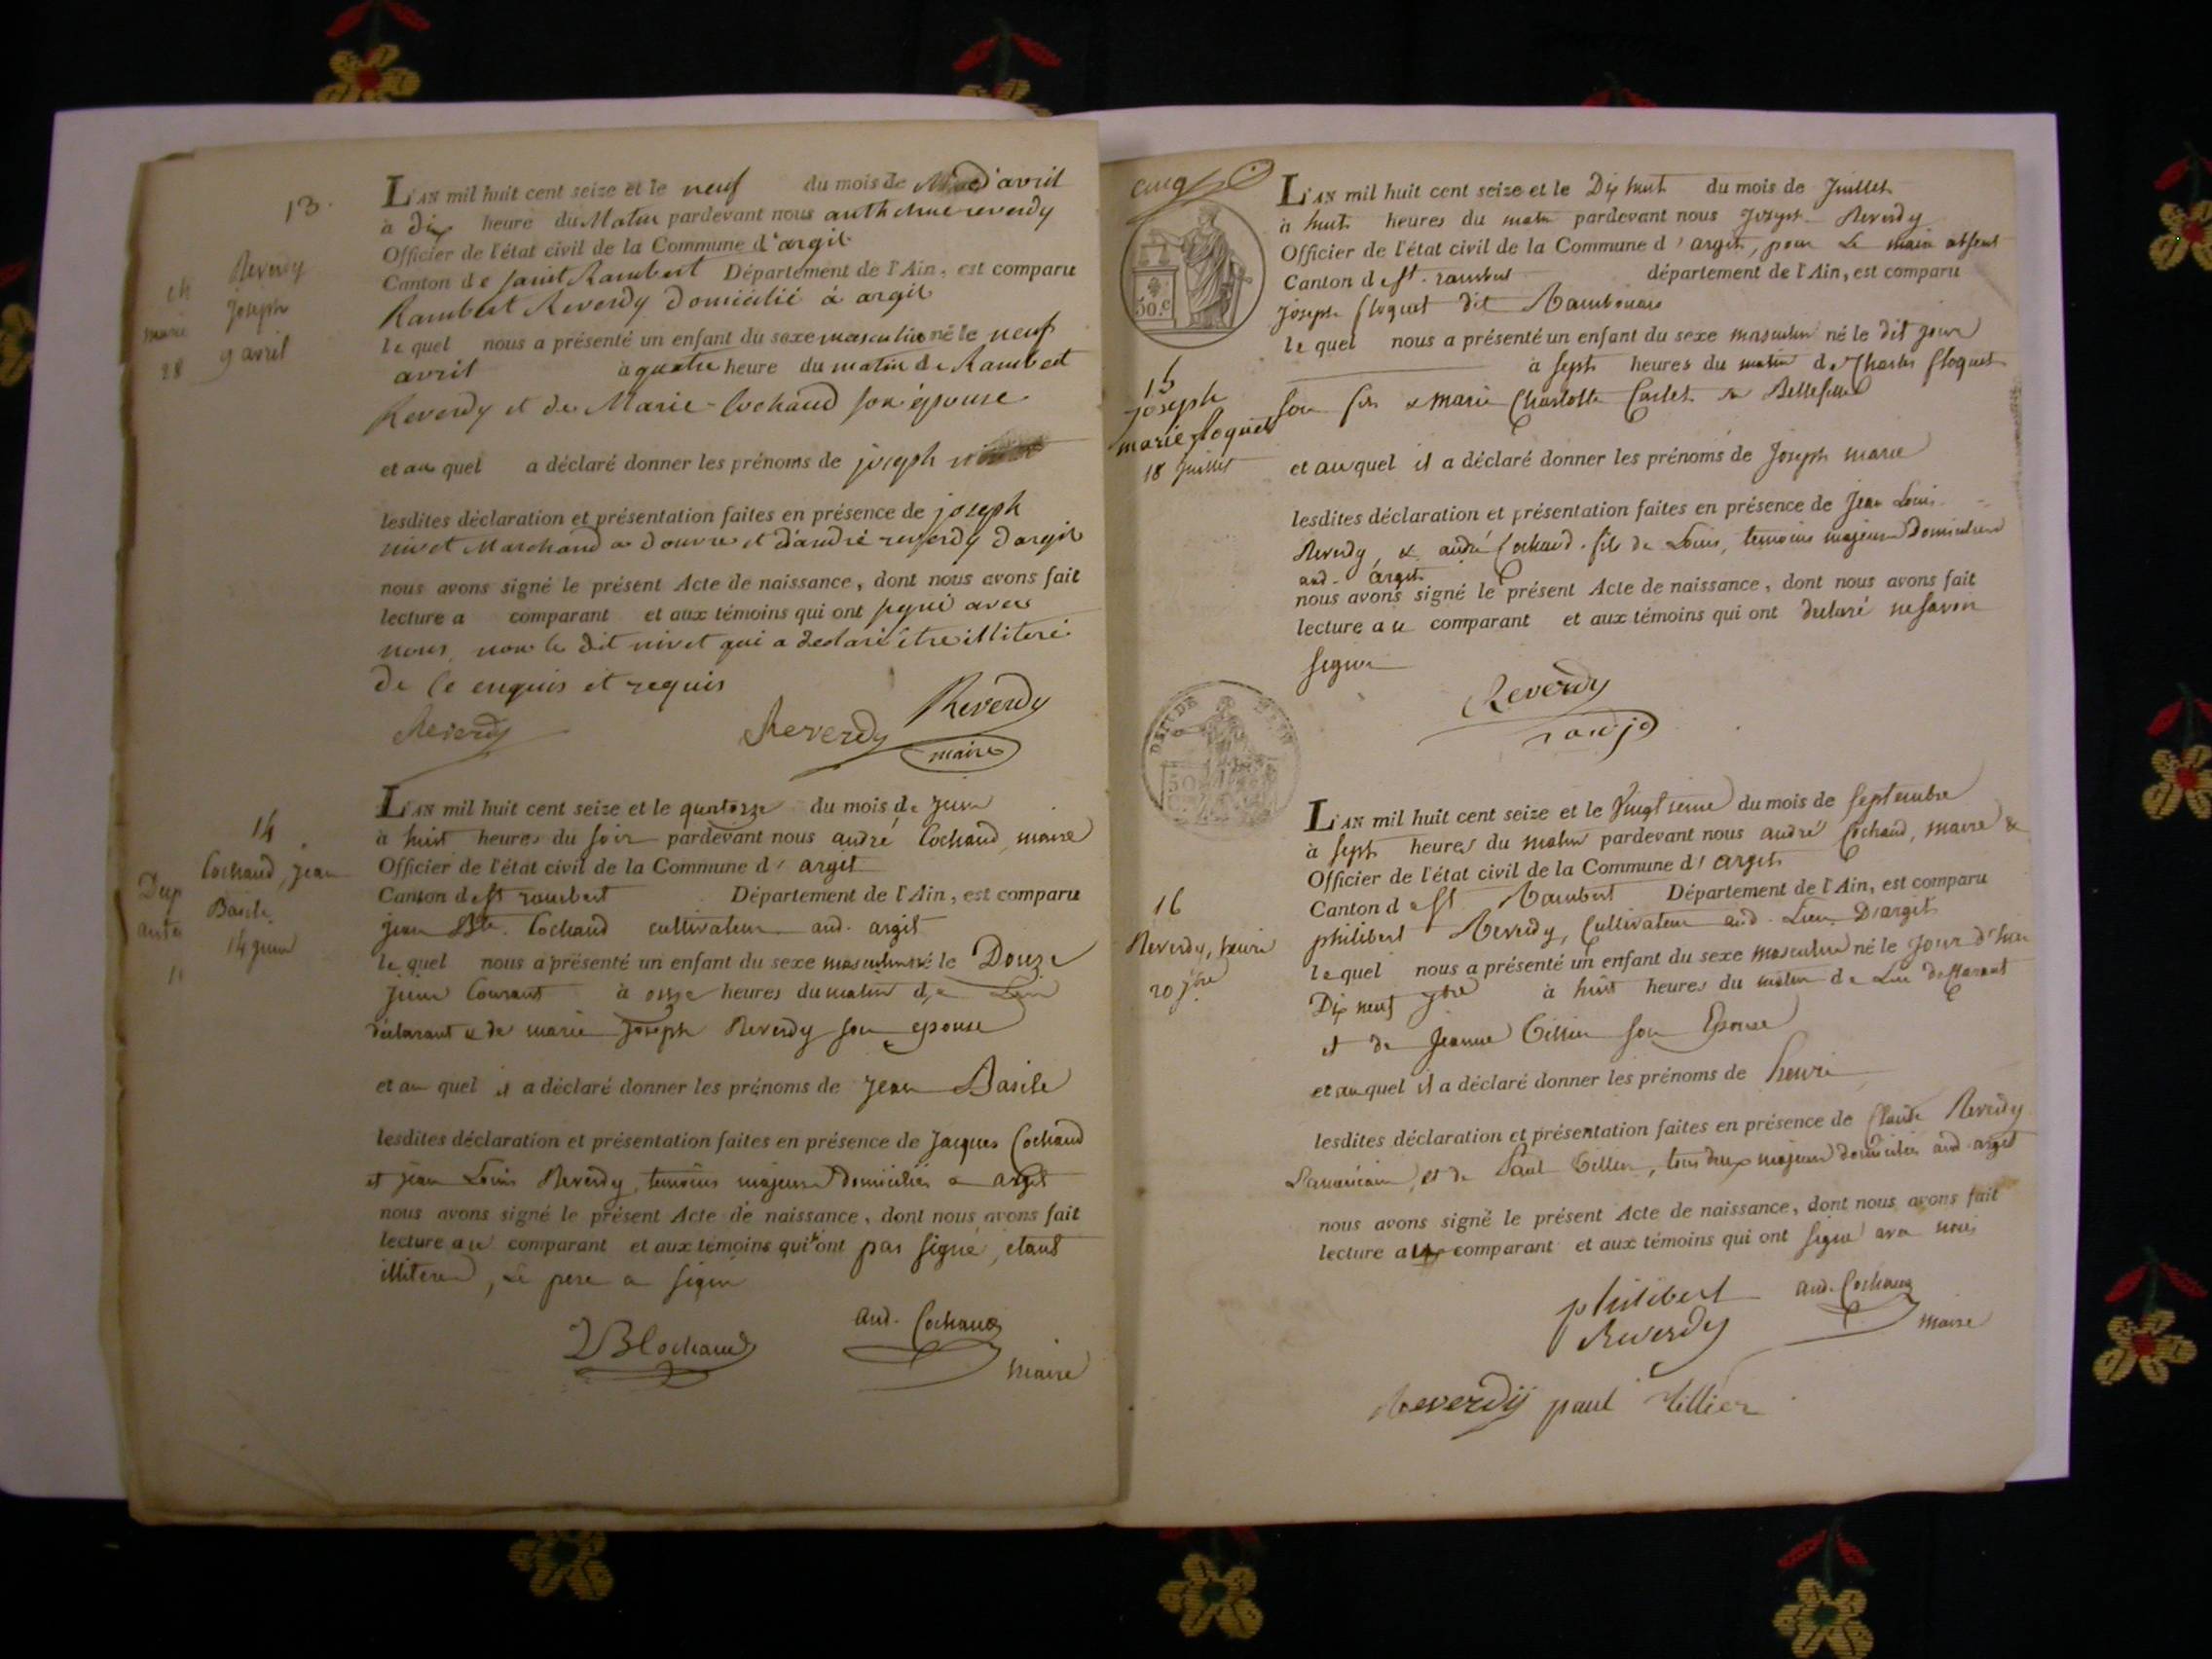 13.
Reverdy
Joseph
9 avril
28
L'AN mil huit cent seize et le neuf du mois de d'avril
à dix heure du Matin pardevant nous anthelme reverdy
Officier de l'état civil de la Commune d'argit
Canton de saint Rambert Département de l'Ain, est comparu
Rambert Reverdy domicilié à argit
le quel nous a présenté un enfant du sexe masculin né le neuf
avril à quatre heure du matin de Rambert
Reverdy et de Marie Cochaud son épouse
et au quel a déclaré donner les prénoms de joseph
lesdites déclaration et présentation faites en présence de joseph
nivet Marchand a douvre et d'andré reverdy d'argit
nous avons signé le présent Acte de naissance, dont nous avons fait
lecture a comparant et aux témoins qui ont signé avec
nous, non le dit nivet qui a declaré être illiteré
de ce enquis et requis
Reverdy Reverdy Reverdy
maire
14
Cochaud, jean
Basile
14 juin
11
L'AN mil huit cent seize et le quatorze du mois de juin
à huit heures du soir pardevant nous andré Cochaud, maire
Officier de l'état civil de la Commune d' argit
Canton de st rambert Département de l'Ain, est comparu
jean Bte. Cochaud cultivateur aud. argit
le quel nous a présenté un enfant du sexe masculin né le Douze
juin Courant à onze heures du matin de Lui
déclarant & de marie Joseph Reverdy son epouse
et au quel il a déclaré donner les prénoms de jean Basile
lesdites déclaration et présentation faites en présence de Jacques Cochaud
et jean Louis Reverdy, temoins majeurs Domiciliés a argit
nous avons signé le présent Acte de naissance, dont nous avons fait
lecture au comparant et aux témoins qui n'ont pas signé, etant
illiterés, Le pere a signé
JB Cochaud and. Cochaud
maire
cinq
50.c
15
joseph
marie floquet
18 juillet
L'AN mil huit cent seize et le Dix huit du mois de Juillet
à huit heures du matin pardevant nous Joseph Reverdy
Officier de l'état civil de la Commune d' argit, pour Le maire absent
Canton de st. rambert département de l'Ain, est comparu
Joseph floquet dit
le quel nous a présenté un enfant du sexe masculin né le dit jour
à sept heures du matin de Charles floquet
son fils & marie Charlotte sa Bellefille
et auquel il a déclaré donner les prénoms de Joseph marie
lesdites déclaration et présentation faites en présence de Jean Louis
Reverdy, & andré Cochaud fils de Louis, temoins majeurs Domiciliés
aud. argit
nous avons signé le présent Acte de naissance, dont nous avons fait
lecture au comparant et aux témoins qui ont declaré ne savoir
signer
Reverdy
16
Reverdy, henri
20 7bre
L'AN mil huit cent seize et le Vingtieme du mois de Septembre
à sept heures du matin pardevant nous andré Cochaud, maire &
Officier de l'état civil de la Commune d' argit
Canton de st. Rambert Département de l'Ain, est comparu
philibert Reverdy, Cultivateur aud. Lieu D'argit
lequel nous a présenté un enfant du sexe masculin né le Jour d'hier
Dix neuf 7bre à huit heures du matin de Lui déclarant
et de Jeanne Tillier son Epouse
et au quel il a déclaré donner les prénoms de henri
lesdites déclaration et présentation faites en présence de Claude Reverdy
et de Paul Tillier, tous deux majeurs domiciliés aud. argit
nous avons signé le présent Acte de naissance, dont nous avons fait
lecture au comparant et aux témoins qui ont signé avec nous
philibert and. Cochaud
Reverdy maire
Reverdy paul tillier